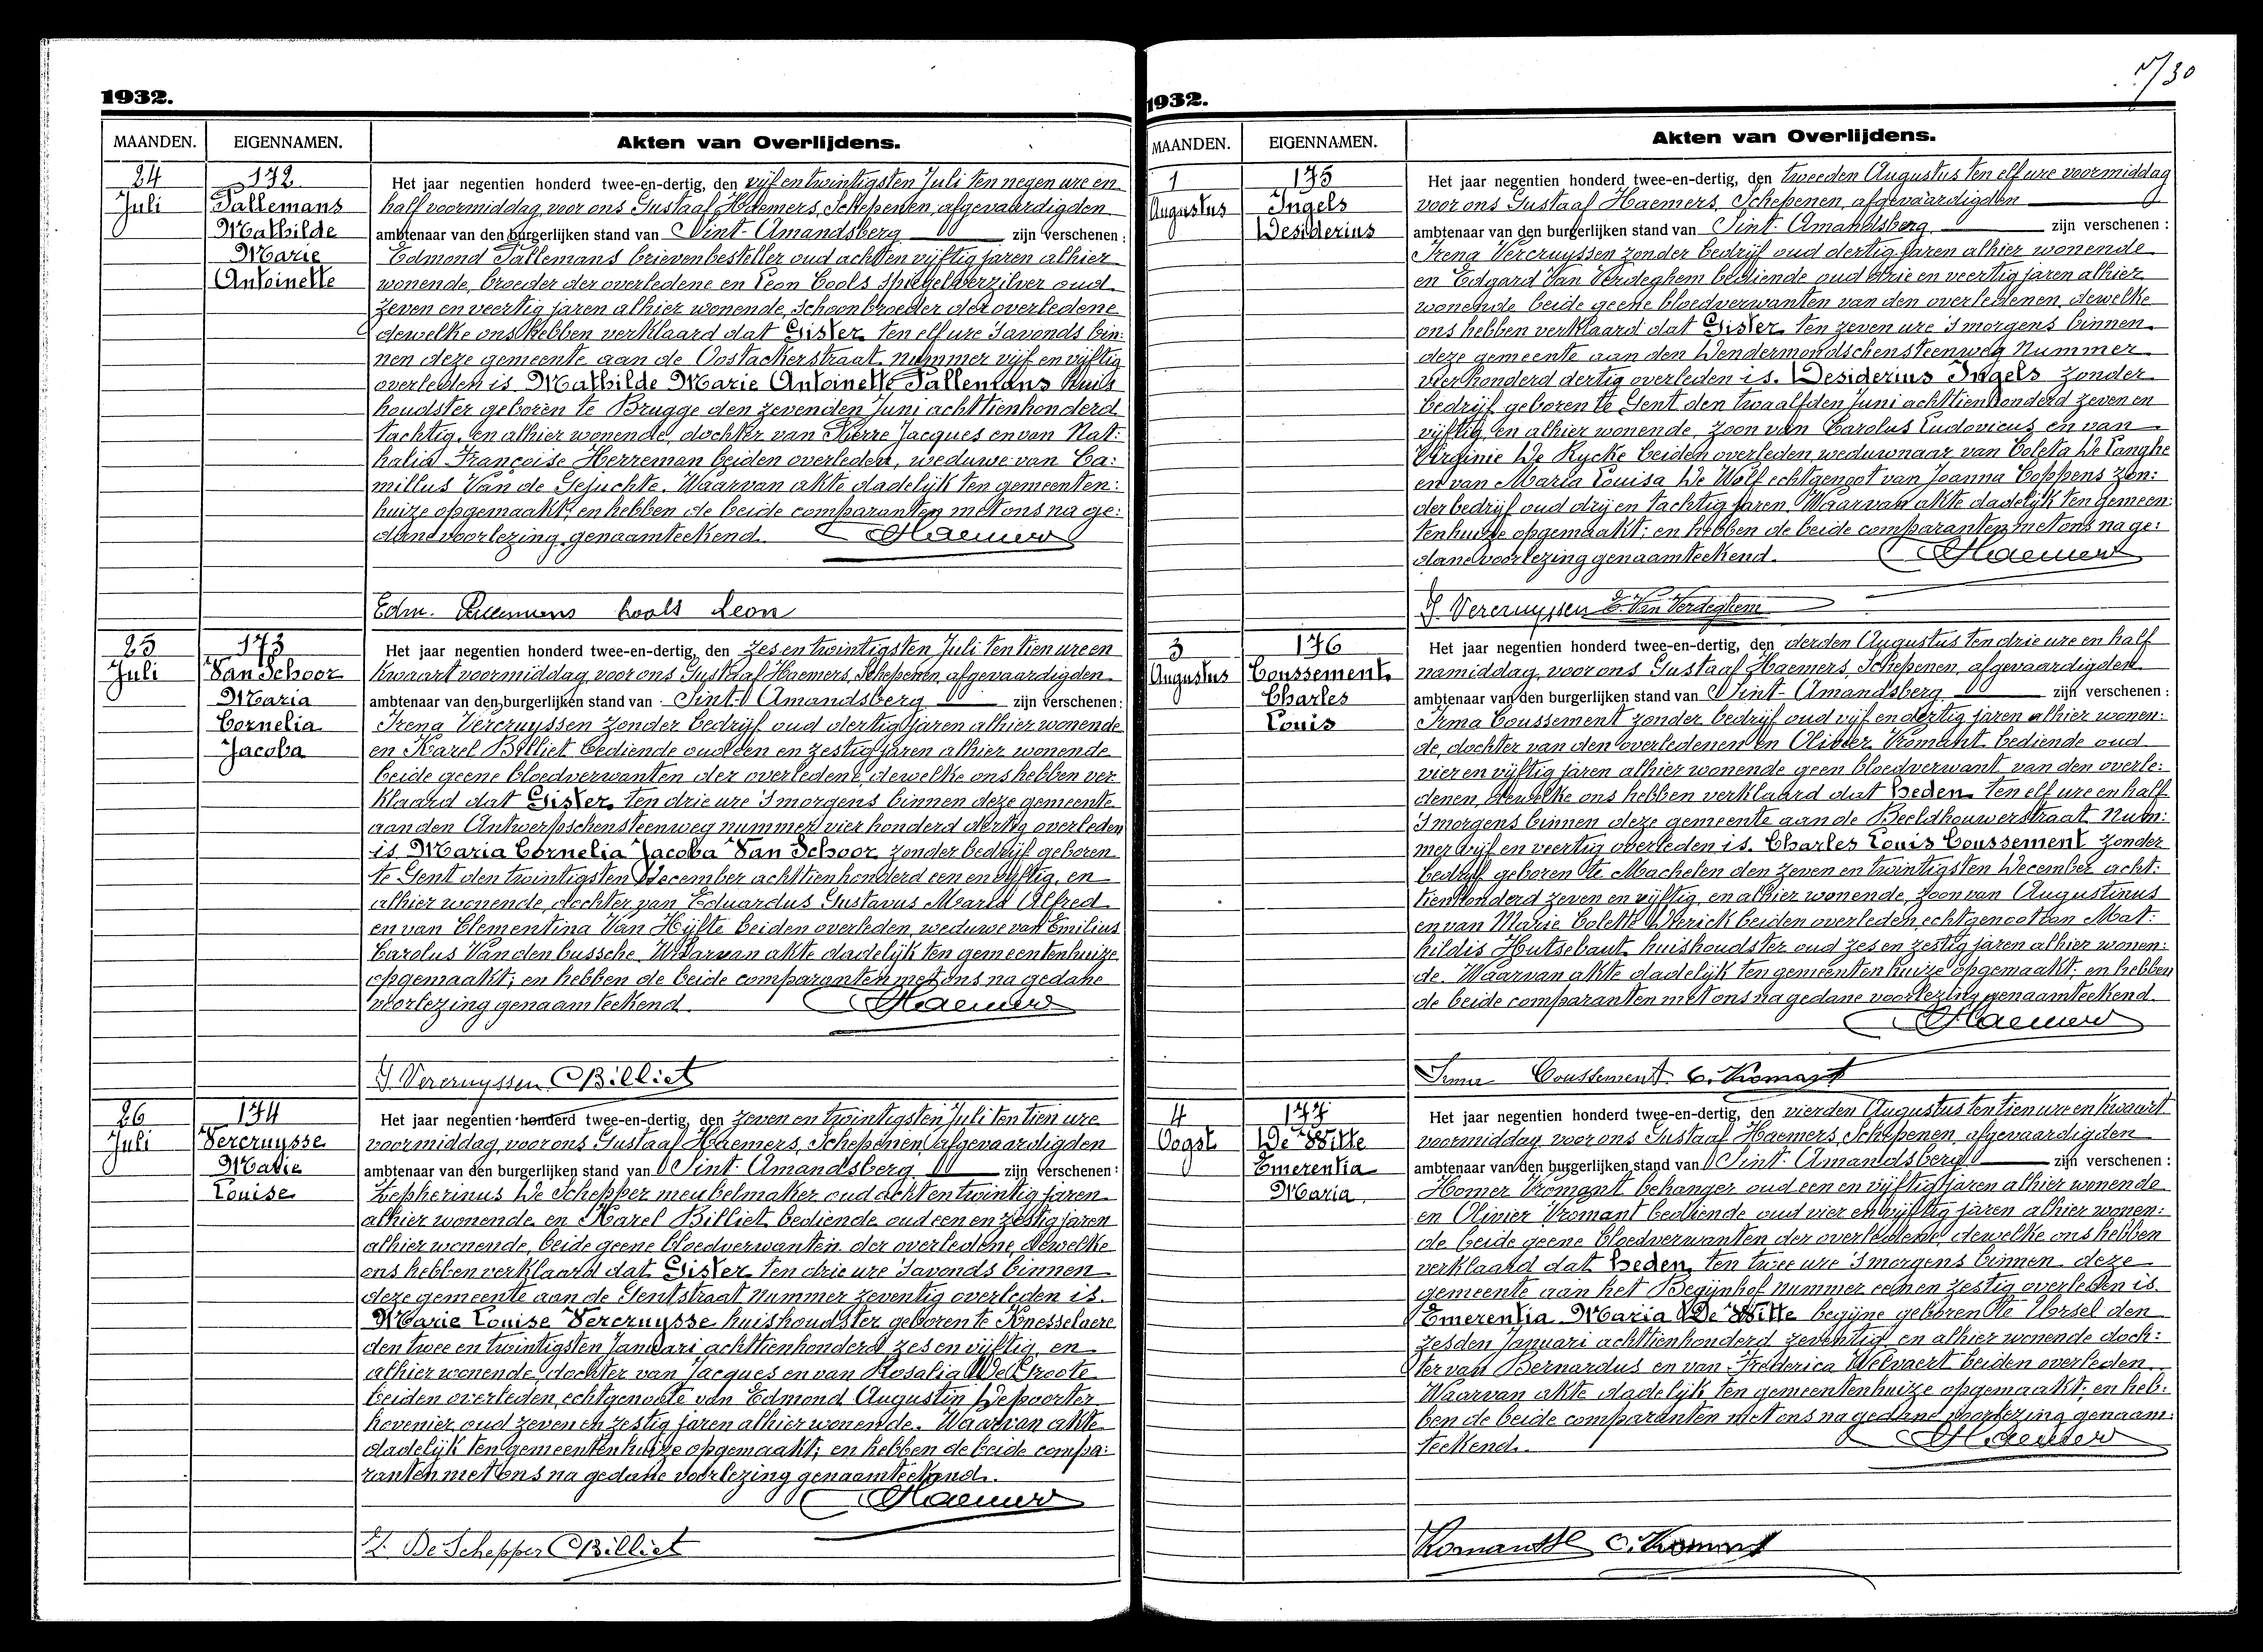 1932.
MAANDEN. EIGENNAMEN. Akten van Overlijdens.
24 172 Het jaar negentien honderd twee-en-dertig, den vijf en twintigsten Juli ten negen ure en
Juli Pallemans half voormiddag, voor ons Gustaaf Haemers, Schepenen, afgevaardigden
Mathilde ambtenaar van den burgerlijken stand van Sint-Amandsberg zijn verschenen:
Marie Edmond Pallemans brievenbesteller oud acht en vijftig jaren alhier
Antoinette wonende, broeder der overledene en Leon Cools spiegelverzilver oud
zeven en veertig jaren alhier wonende, schoonbroeder der overledene
dewelke ons hebben verklaard dat Gister ten elf ure 's avonds bin:
nen deze gemeente aan de Oostackerstraat nummer vijf en vijftig
overleden is Mathilde Marie Antoinette Pallemans huis
houdster geboren te Brugge den zevenden Juni achttienhonderd
tachtig, en alhier wonende, dochter van Pierre Jacques en van Nat:
halia Françoise Herreman beiden overleden, weduwe van Ca:
millus Van de Gejuchte. Waarvan akte dadelijk ten gemeenten:
huize opgemaakt; en hebben de beide comparanten met ons na ge:
dane voorlezing genaamteekend. Haemers
Edm. Pallemans Cools Leon
25 173 Het jaar negentien honderd twee-en-dertig, den zes en twintigsten Juli ten tien ure en
Juli Van Schoor kwaart voormiddag, voor ons Gustaaf Haemers, Schepenen, afgevaardigden
Maria ambtenaar van den burgerlijken stand van Sint-Amandsberg zijn verschenen:
Cornelia Irena Vercruyssen zonder bedrijf oud dertig jaren alhier wonende
Jacoba en Karel Billiet bediende oud een en zestig jaren alhier wonende
beide geene bloedverwanten der overledene, dewelke ons hebben ver
klaard dat Gister ten drie ure 's morgens binnen deze gemeente
aan den Antwerpschensteenweg nummer vier honderd dertig overleden
is Maria Cornelia Jacoba Van Schoor zonder bedrijf geboren
te Gent den twintigsten December achttienhonderd een en vijftig, en
alhier wonende, dochter van Eduardus Gustavus Maria Alfred
en van Clementina Van Hijfte beiden overleden, weduwe van Emilius
Carolus Vanden bussche. Waarvan akte dadelijk ten gemeentenhuize
opgemaakt; en hebben de beide comparanten met ons na gedane
voorlezing genaamteekend. Haemers
I. Vercruyssen CBilliet
26 174 Het jaar negentien honderd twee-en-dertig, den zeven en twintigsten Juli ten tien ure
Juli Vercruysse voormiddag, voor ons Gustaaf Haemers, Schepenen, afgevaardigden
Marie ambtenaar van den burgerlijken stand van Sint-Amandsberg zijn verschenen:
Louise Zepherinus De Schepper meubelmaker oud acht en twintig jaren
alhier wonende en Karel Billiet bediende oud een en zestig jaren
alhier wonende, beide geene bloedverwanten der overledene, dewelke
ons hebben verklaard dat Gister ten drie ure 's avonds binnen
deze gemeente aan de Gentstraat nummer zeventig overleden is.
Marie Louise Vercruysse huishoudster geboren te Knesselaere
den twee en twintigsten Januari achttienhonderd zes en vijftig, en
alhier wonende, dochter van Jacques en van Rosalia De Groote
beiden overleden, echtgenoote van Edmond Augustin Depoorter
hovenier, oud zeven en zestig jaren alhier wonende. Waarvan akte
dadelijk ten gemeentenhuize opgemaakt; en hebben de beide compa:
ranten met ons na gedane voorlezing genaamteekend.
Haemers
Z. De Schepper CBilliet
1932.
MAANDEN. EIGENNAMEN. Akten van Overlijdens.
1 175 Het jaar negentien honderd twee-en-dertig, den tweeden Augustus ten elf ure voormiddag
Augustus Ingels voor ons Gustaaf Haemers, Schepenen, afgevaardigden
Desiderius ambtenaar van den burgerlijken stand van Sint-Amandsberg zijn verschenen:
Irena Vercruyssen zonder bedrijf oud dertig jaren alhier wonende
en Edgard Van Verdeghem bediende oud drie en veertig jaren alhier
wonende beide geene bloedverwanten van den overledenen, dewelke
ons hebben verklaard dat Gister ten zeven ure 's morgens binnen
deze gemeente aan den Dendermondschensteenweg nummer
vier honderd dertig overleden is. Desiderius Ingels zonder
bedrijf geboren te Gent den twaalfden Juni achttienhonderd zeven en
vijftig, en alhier wonende, zoon van Carolus Ludovicus en van
Virginie De Rycke beiden overleden, weduwnaar van Coleta De Langhe
en van Maria Louisa De Wolf echtgenoot van Joanna Coppens zon:
der bedrijf oud drij en tachtig jaren. Waarvan akte dadelijk ten gemeen:
tenhuize opgemaakt; en hebben de beide comparanten met ons na ge:
dane voorlezing genaamteekend. Haemers
I. Vercruyssen E. Van Verdeghem
3 176 Het jaar negentien honderd twee-en-dertig, den derden Augustus ten drie ure en half
Augustus Coussement namiddag, voor ons Gustaaf Haemers, Schepenen, afgevaardigden
Charles ambtenaar van den burgerlijken stand van Sint-Amandsberg zijn verschenen:
Louis Irma Coussement zonder bedrijf oud vijf en dertig jaren alhier wonen:
de, dochter van den overledenen en Olivier Vromant bediende oud
vier en vijftig jaren alhier wonende geen bloedverwant van den overle:
denen, dewelke ons hebben verklaard dat heden ten elf ure en half
's morgens binnen deze gemeente aan de Beeldhouwerstraat num:
mer vijf en veertig overleden is. Charles Louis Coussement zonder
bedrijf geboren te Machelen den zeven en twintigsten December acht:
tienhonderd zeven en vijftig, en alhier wonende, zoon van Augustinus
en van Marie Colette Dierick beiden overleden, echtgenoot van Mat:
hildis Hutsebaut huishoudster oud zes en zestig jaren alhier wonen:
de. Waarvan akte dadelijk ten gemeentenhuize opgemaakt; en hebben
de beide comparanten met ons na gedane voorlezing genaamteekend.
Haemers
Irma Coussement O. Vromant
4 177 Het jaar negentien honderd twee-en-dertig, den vierden Augustus ten tien ure en kwaart
Oogst De Witte voormiddag, voor ons Gustaaf Haemers, Schepenen, afgevaardigden
Emerentia ambtenaar van den burgerlijken stand van Sint-Amandsberg zijn verschenen:
Maria. Homer Vromant behanger oud een en vijftig jaren alhier wonende
en Olivier Vromant bediende oud vier en vijftig jaren alhier wonen:
de beide geene bloedverwanten der overledene, dewelke ons hebben
verklaard dat heden ten twee ure 's morgens binnen deze
gemeente aan het Begijnhof nummer een en zestig overleden is.
Emerentia Maria De Witte begijne geboren te Ursel den
zesden Januari achttienhonderd zeventig en alhier wonende doch:
ter van Bernardus en van Frederica Welvaert beiden overleden.
Waarvan akte dadelijk ten gemeentenhuize opgemaakt; en heb:
ben de beide comparanten met ons na gedane voorlezing genaam:
teekend. Haemers
Vromant H O. Vromant